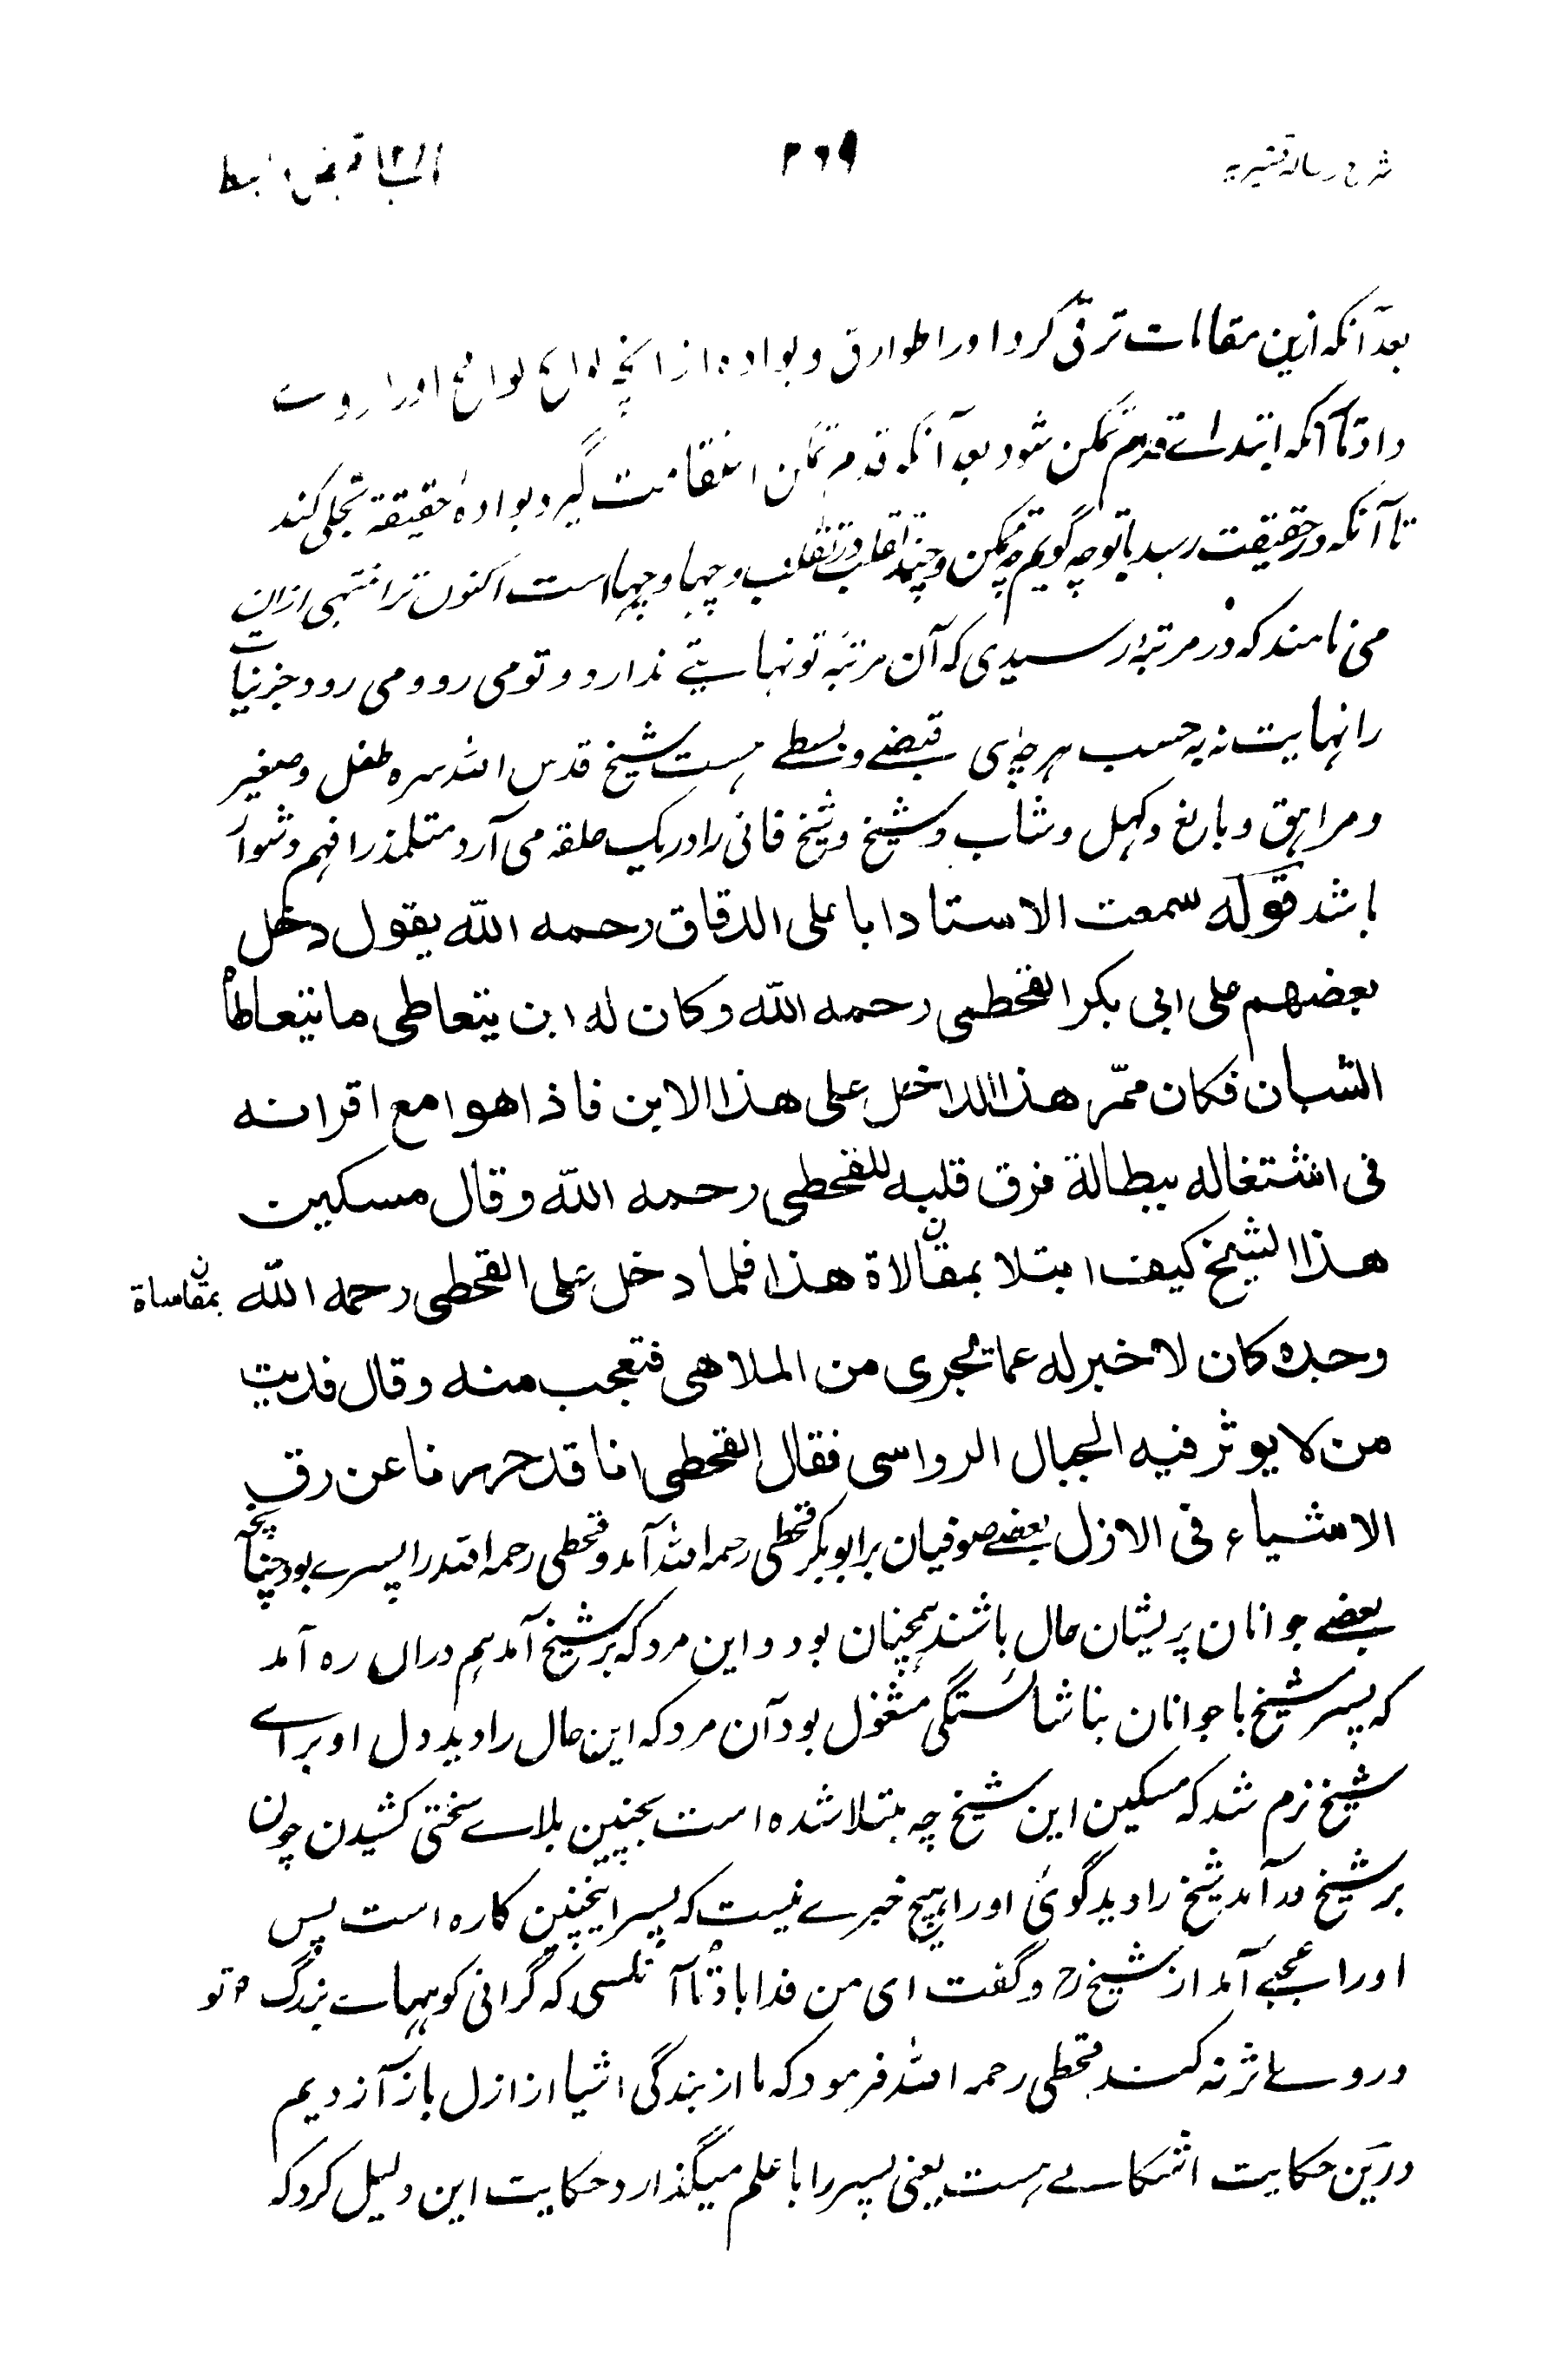 شرح رسالہ قشیریہ ۲۶۹ قبض بسط
بعد آنکہ ازین مقامات ترقی کرد اورا طوارق و بوادہ از انچہ لوائح لوامع اورا روے
داد تا آنکہ ابتداے قدم تمکن شود بعد آنکہ قدم تمکن استقامت گیرد بوادہ حقیقۃ تجلی کند
تا آنکہ در حقیقت رسد با تو چہ گویم چہ تمکن و چند تقلب در تقلب و چہا و چہاست اکنون ترا منتہی ازان
می نامند کہ در مرتبہ رسیدی کہ آن مرتبہ تو نہایتے ندارد و تو می رو و می رود جزئیات
را نہایت نہ بہ حسب ہر چہ قبضے و بسطے ہست شیخ قدس اللہ سرہ طفل و صغیر
و مراہق و بالغ و کہل و شاب و شیخ و شیخ فانی را در یک حلقہ می آرد متلمذ را فہم دشوار
باشد قولہ سمعت الاستاد ابا علی الدقاق رحمه اللہ یقول دخل
بعضهم علی ابی بکر القحطبی رحمه اللہ وکان له ابن یتعاطی ما یتعاطاہ
الشبان فکان ممّر هذا الداخل علی هذا الابن فاذا هوا مع اقرانه
فی اشتغاله ببطالة فرق قلبه للقحطی رحمه اللہ وقال مسکین
هذا الشیخ کیف ابتلا بمقالاة هذا فلما دخل علی القحطی رحمه اللہ بمقاساة
وحده کان لا خبر له عما یجری من الملاهی فتعجب منه وقال فدیت
من لا یوثر فیه الجبال الرواسی فقال القحطی انا قد حررنا عن رق
الاشیاء فی الازل بعضے صوفیان بر ابوبکر قحطی رحمہ اللہ آمد و قحطی رحمہ اللہ را پسرے بود چنانچہ
بعضے جوانان پریشان حال باشند ہمچنان بود و این مرد کہ بر شیخ آمد ہم دران رہ آمد
کہ پسر شیخ با جوانان بناشائستگی مشغول بود آن مرد کہ این حال را دید دل او براے
شیخ نرم شد کہ مسکین این شیخ چہ مبتلا شدہ است بچنین بلاے سختی کشیدن چون
بر شیخ در آمد شیخ را دید گوئی اورا ہیچ خبرے نیست کہ پسر اینچنین کارہ است پس
اورا عجبے آمد از شیخ رح و گفت ای من فدا باد تا آنکسی کہ گرانی کوہہاے بزرگ ۴ تو
در وے اثر نہ کند قحطی رحمہ اللہ فرمود کہ ما از بندگی اشیا از ازل باز آزادیم
درین حکایت اشکالے ہست یعنی پسر را با علم میگذارد حکایت این دلیل کرد کہ